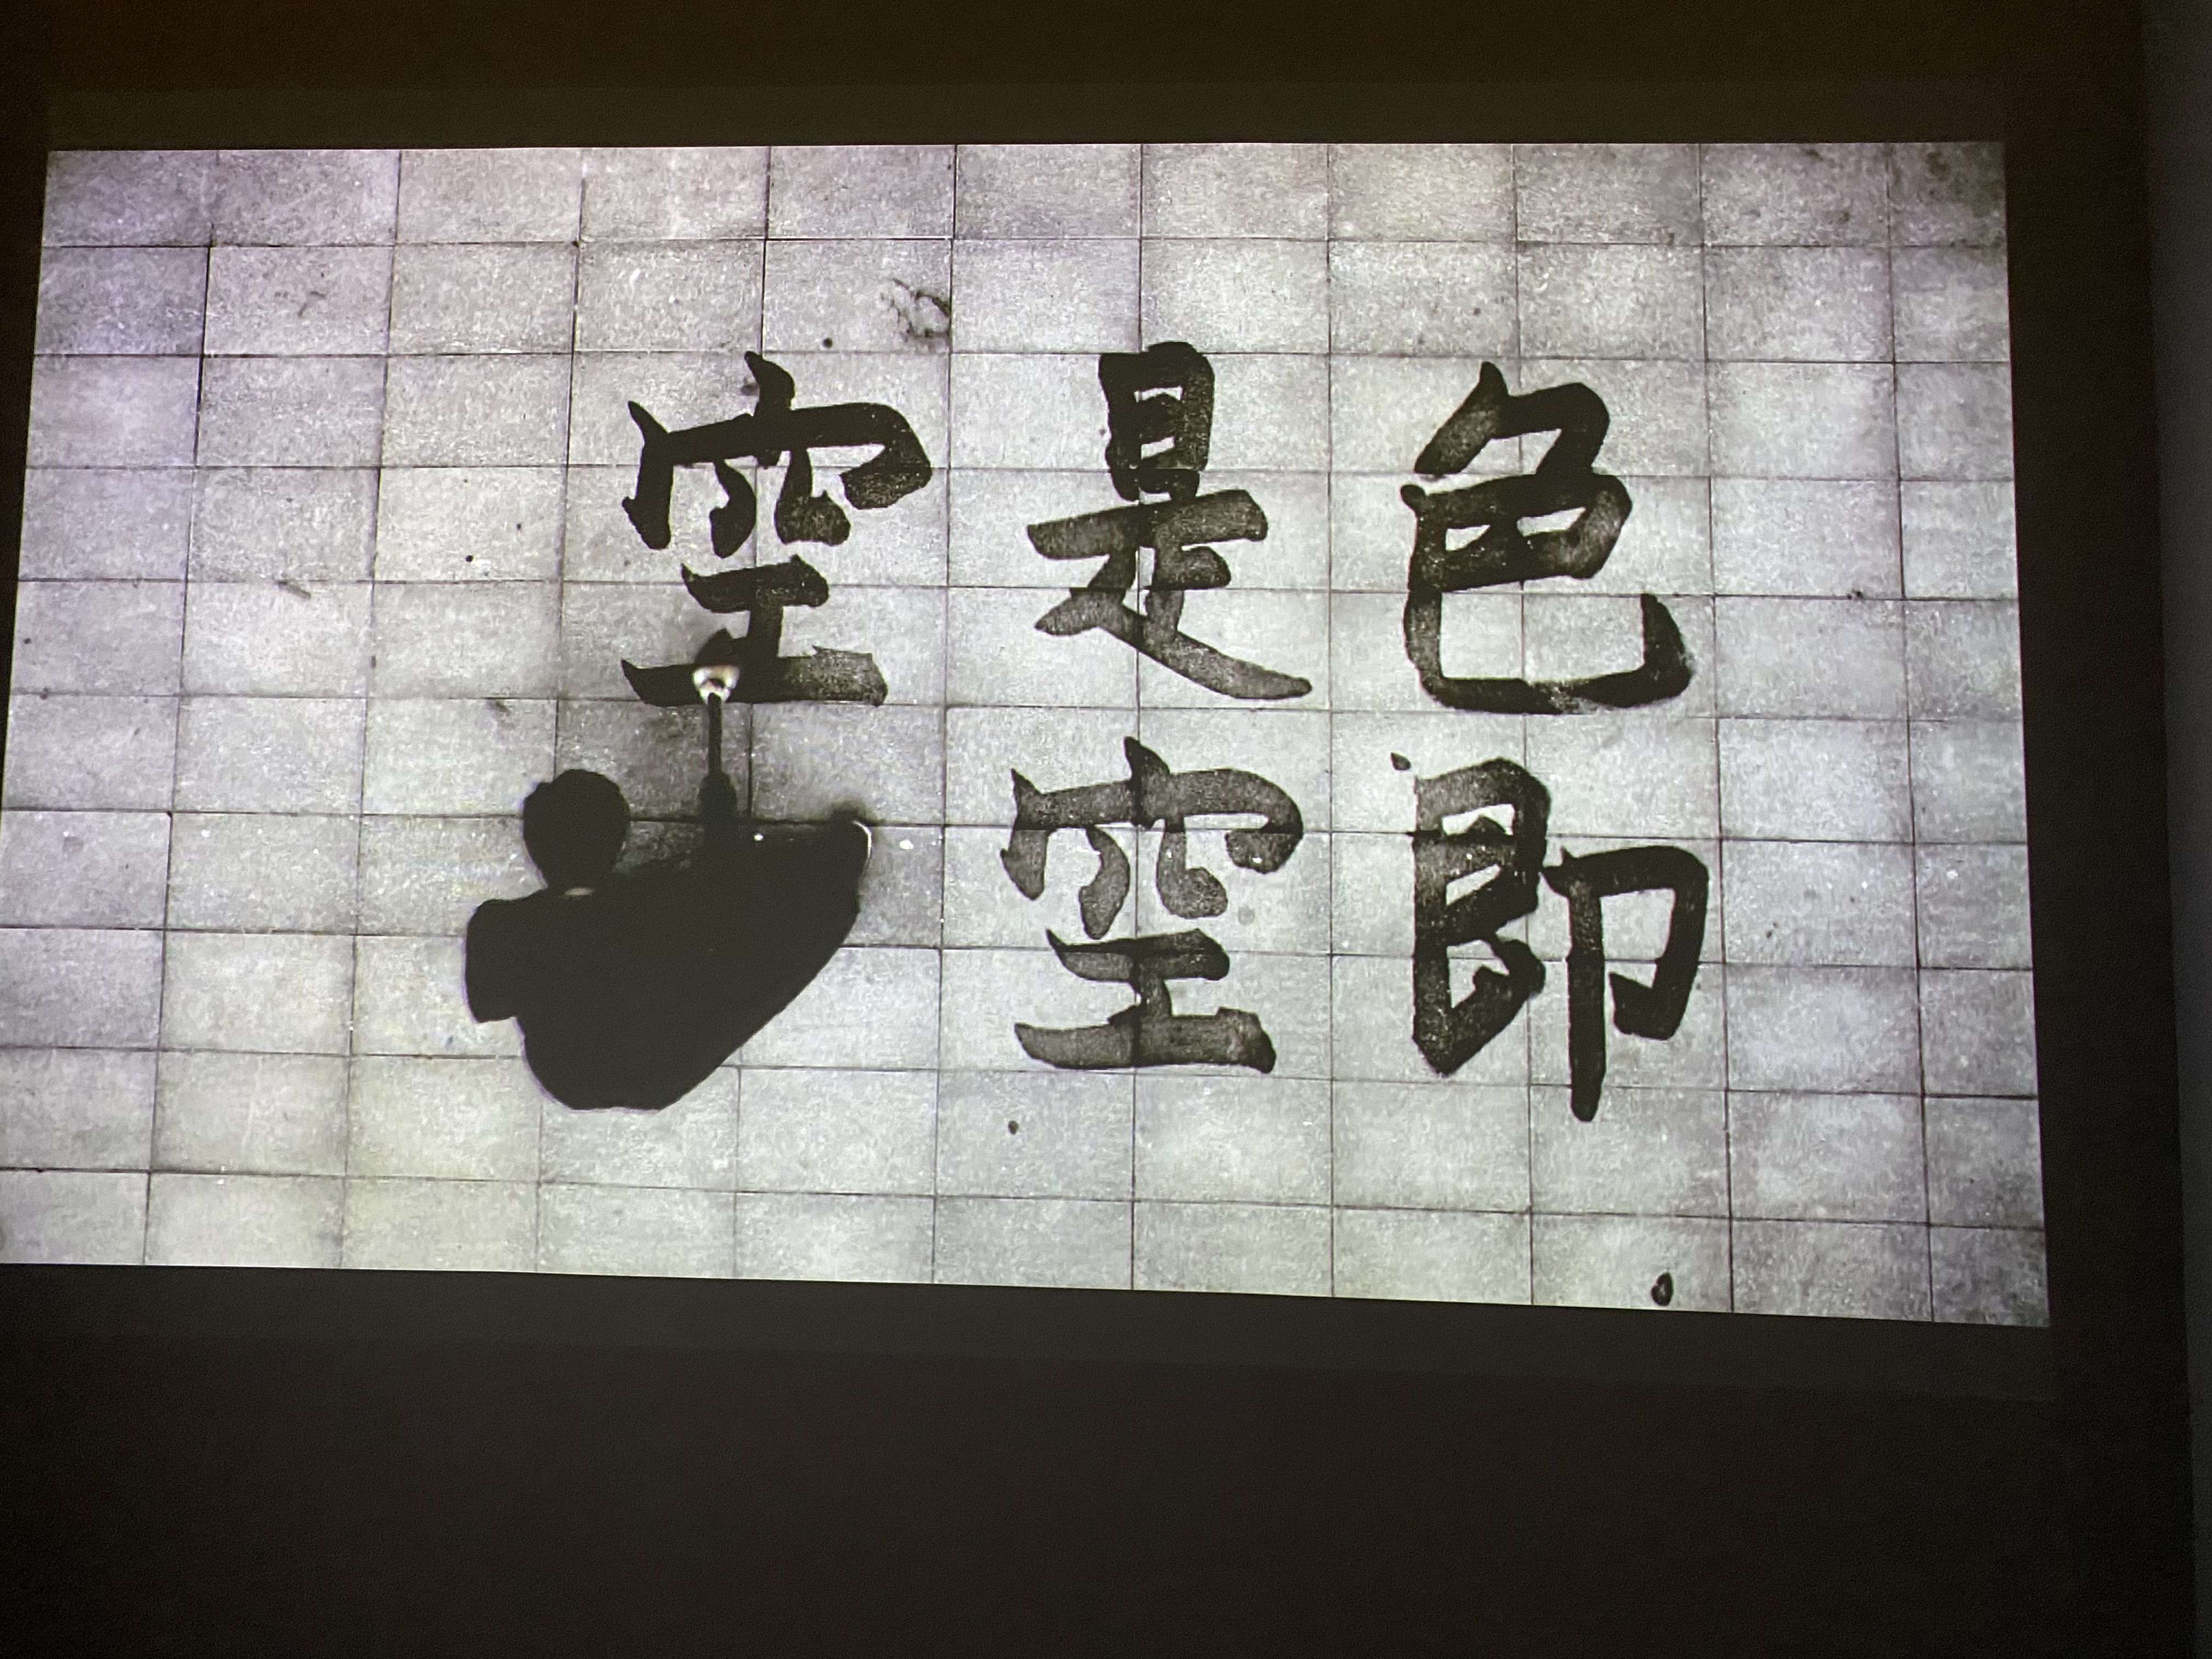 色即
是空
空